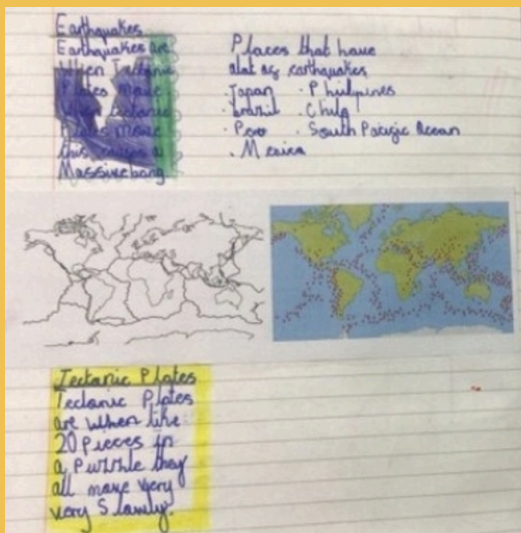 Earthquakes
Earthquakes are
When Tectonic
Plates move
tectonic
Plates move
this causes a
Massive bang
Places that have
alot of earthquakes
· Japan · Philipines
· brazil · Chile
· Pero · South Pacific Ocean
· Mexico
Tectonic Plates
Tectonic Plates
are when like
20 Pieces in
a Puzzle they
all move very
very Slowly.